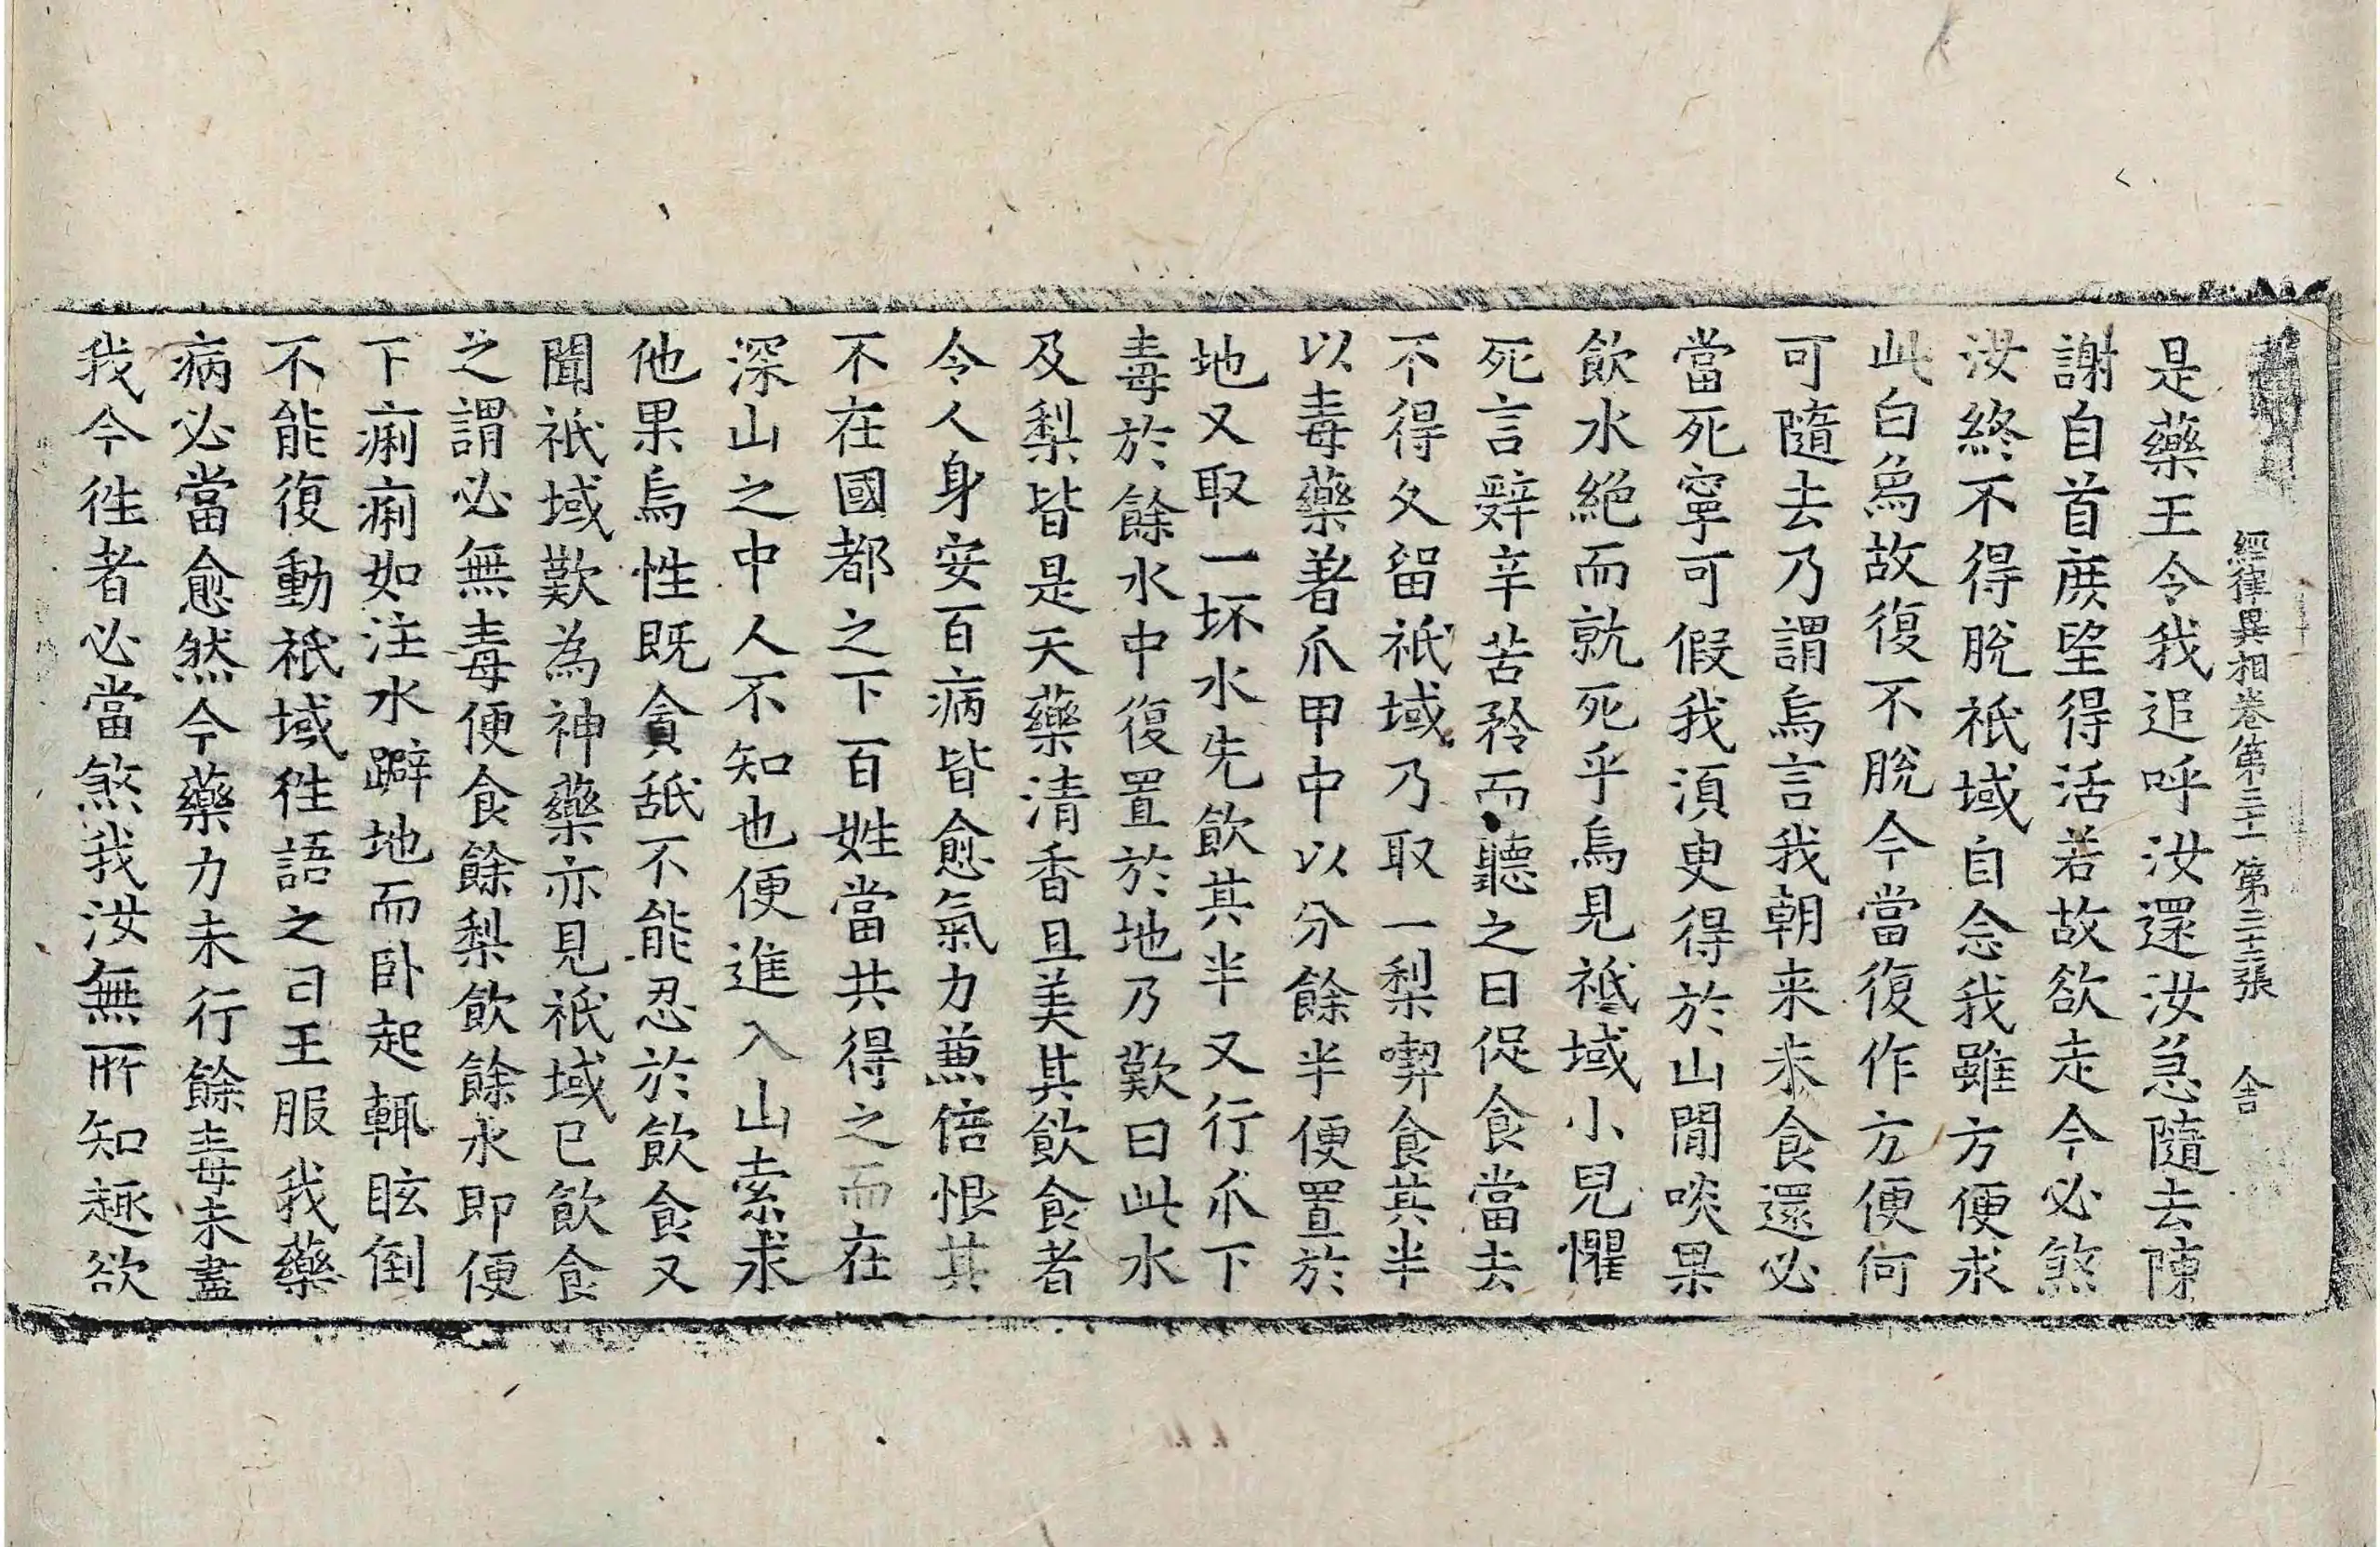 經律異相卷第三十一 第二十三張 舍
是藥王令我追呼汝還汝急隨去陳
謝自首庶望得活若故欲走今必煞
汝終不得脫祇域自念我雖方便求
此白烏故復不脫今當復作方便何
可隨去乃謂烏言我朝来未食還必
當死寧可假我須臾得於山閒啖果
飲水絶而就死乎烏見祇域小兒懼
死言辭辛苦矜而聽之曰促食當去
不得久留祇域乃取一梨喫食其半
以毒藥著爪甲中以分餘半便置於
地又取一坏水先飲其半又行爪下
毒於餘水中復置於地乃歎曰此水
及梨皆是天藥清香且美其飲食者
令人身安百病皆愈氣力兼倍恨其
不在國都之下百姓當共得之而在
深山之中人不知也便進入山索求
他果烏性既貪舐不能忍於飲食又
聞祇域歎為神藥亦見祇域已飲食
之謂必無毒便食餘梨飲餘水即便
下痢痢如注水躃地而卧起輒眩倒
不能復動祇域徃語之曰王服我藥
病必當愈然今藥力未行餘毒未盡
我今徃者必當煞我汝無所知趣欲